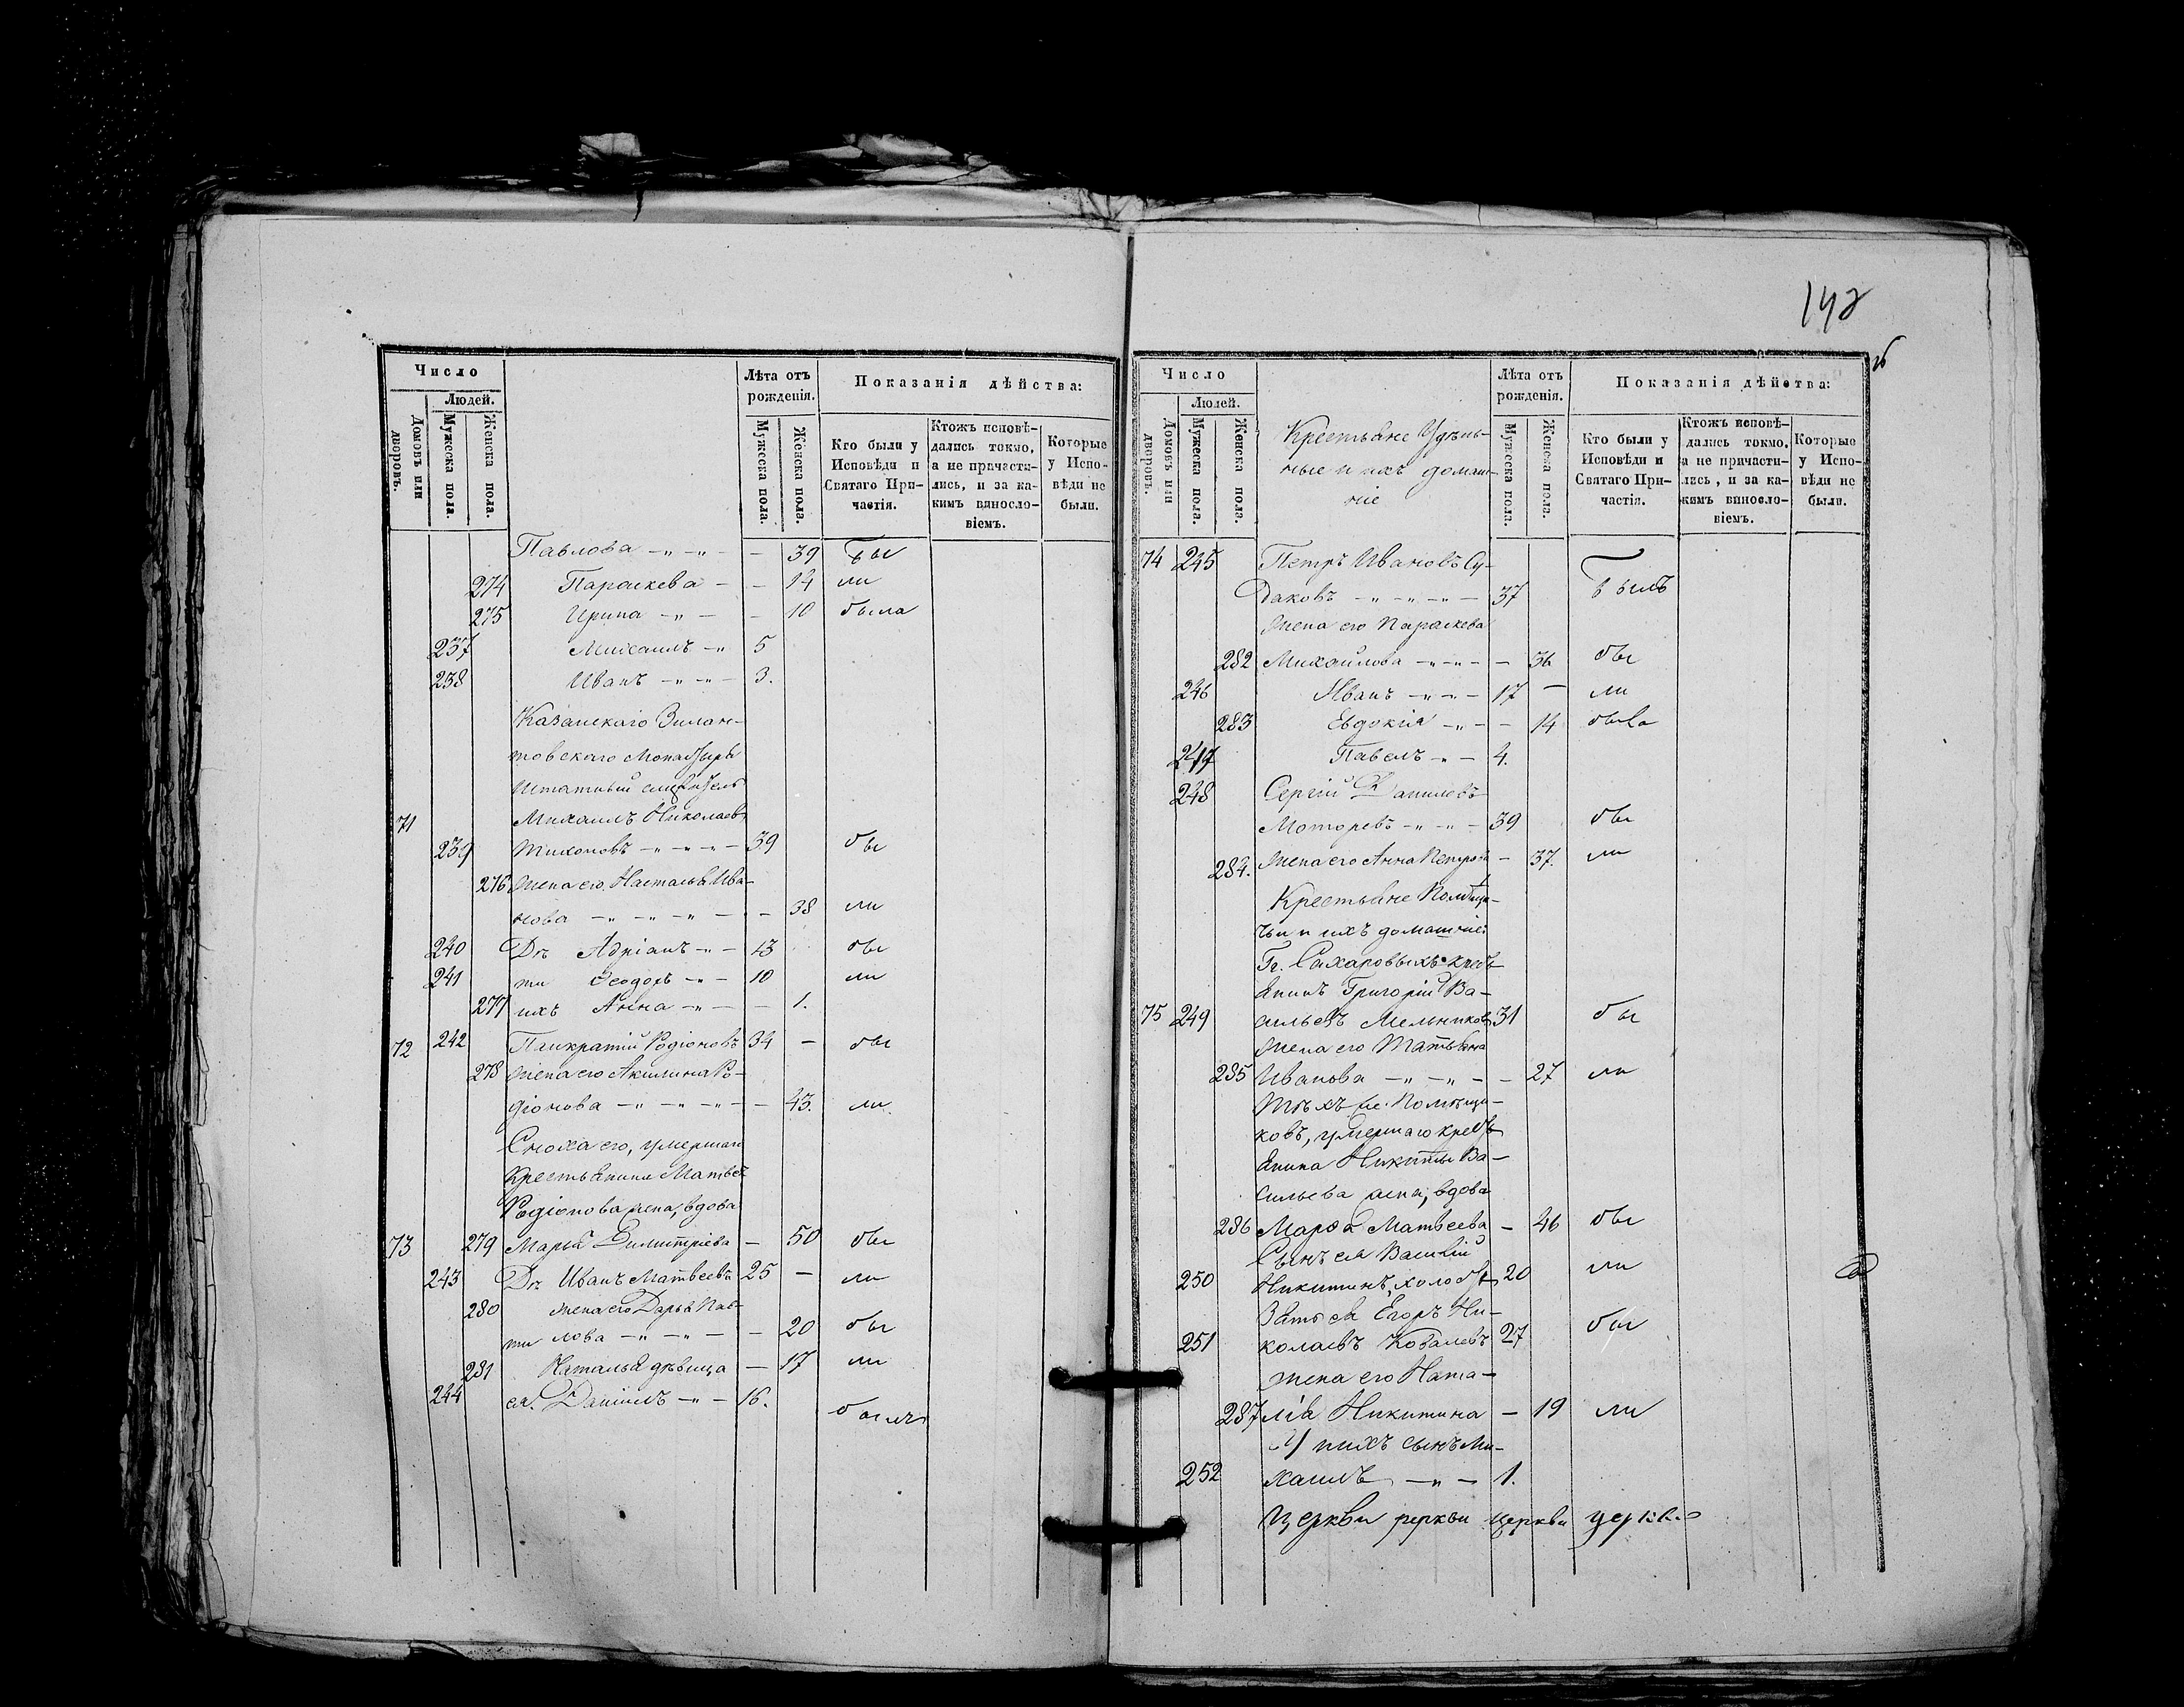 Число
Людей.
Домовъ или дворовъ.
Мужеска пола.
Женска пола.
Лѣта отъ рожденія.
Мужеска пола.
Женска пола.
Показанія дѣйства:
Кто были у Исповѣди и Святаго Причастія.
Ктожъ исповѣдались токмо, а не причастились, и за какимъ винословіемъ.
Которые у Исповѣди не были.
Павлова — „ — „ — — 39 бы
274 Параскева — — 14 ли
275 Ирина — „ — — 10 была
237 Михаилъ — „ 5
238 Иванъ — „ — „ — 3.
Казанскаго Зилан-
товскаго Монастыря
штатный служитель
71 Михаилъ Николаевъ
239 Тихоновъ — „ — „ — „ — 39 бы
276 жена его Наталья Ива-
нова — „ — „ — „ — — 38 ли
240 Дѣ Адріанъ — „ — 13 бы
241 ти Ѳеодоръ — „ — 10 ли
277 ихъ Анна — „ — — 1.
72 242 Панкратій Родіоновъ 34 — бы
278 жена его Акилина Ро-
діонова — „ — „ — „ — — 43. ли
Сноха его, умершаго
крестьянина Матвѣя
Родіонова жена, вдова
73 279 Марья Димитріева — 50 бы
243 Дѣ Иванъ Матвѣевъ 25 — ли
280 жена его Дарья Пав-
ти лова — „ — „ — — 20 бы
281 Наталья дѣвица — 17 ли
244 ея. Даніилъ — „ — 16. былъ
142
Число
Людей.
Домовъ или дворовъ.
Мужеска пола.
Женска пола.
Крестьяне Удѣль-
ные и ихъ домаш-
ніе
Лѣта отъ рожденія.
Мужеска пола.
Женска пола.
Показанія дѣйства:
Кто были у Исповѣди и Святаго Причастія.
Ктожъ исповѣдались токмо, а не причастились, и за какимъ винословіемъ.
Которые у Исповѣди не были.
74 245 Петръ Ивановъ Су-
даковъ — „ — „ — „ — 37 былъ
жена его Параскева
282 Михайлова — „ — „ — — 36 бы
246 Иванъ — „ — „ — 17 — ли
283 Евдокія — „ — — 14 была
247 Павелъ — „ — 4.
248 Сергій Даниловъ
Моторевъ — „ — „ — 39 бы
284. жена его Анна Петрова — 37. ли
Крестьяне Помѣщи-
чьи и ихъ домашніе:
Гг. Сахаровыхъ кресть-
янинъ Григорій Ва-
75 249 сильевъ Мельниковъ 31 бы
жена его Татьяна
285 Иванова — „ — „ — — 27 ли
Тѣхъ же Помѣщи-
ковъ, умершаго кресть-
янина Никиты Ва-
сильева жена, вдова
286 Марѳа Матвеева — 46 бы
Сынъ ея Василій
250 Никитинъ, холостъ 20 ли
Зять ея Егоръ Ни-
251 колаевъ Ковалевъ 27 бы
жена его Ната-
287 лія Никитина — 19 ли
У нихъ сынъ Ми-
252 хаилъ — „ — 1.
церкви церкви церкви церкви